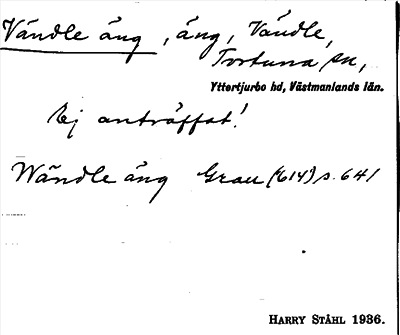 Vändle äng, äng, Vändle,
Tortuna sn,
Yttertjurbo hd, Västmanlands län.
Ej anträffat!
Wändle äng Grau (1614) s. 641
HARRY STÅHL 1936.